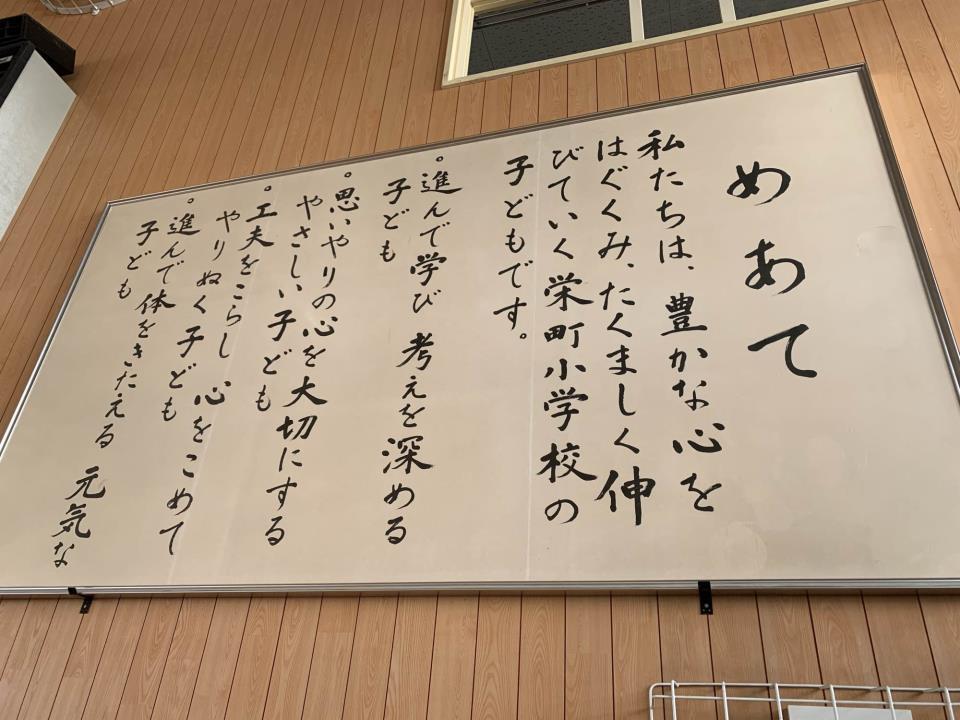 めあて
私たちは、豊かな心を
はぐくみ、たくましく伸
びていく栄町小学校の
子どもです。
。進んで学び 考えを深める
子ども
。思いやりの心を大切にする
やさしい子ども
。工夫をこらし 心をこめて
やりぬく子ども
。進んで体をきたえる 元気な
子ども